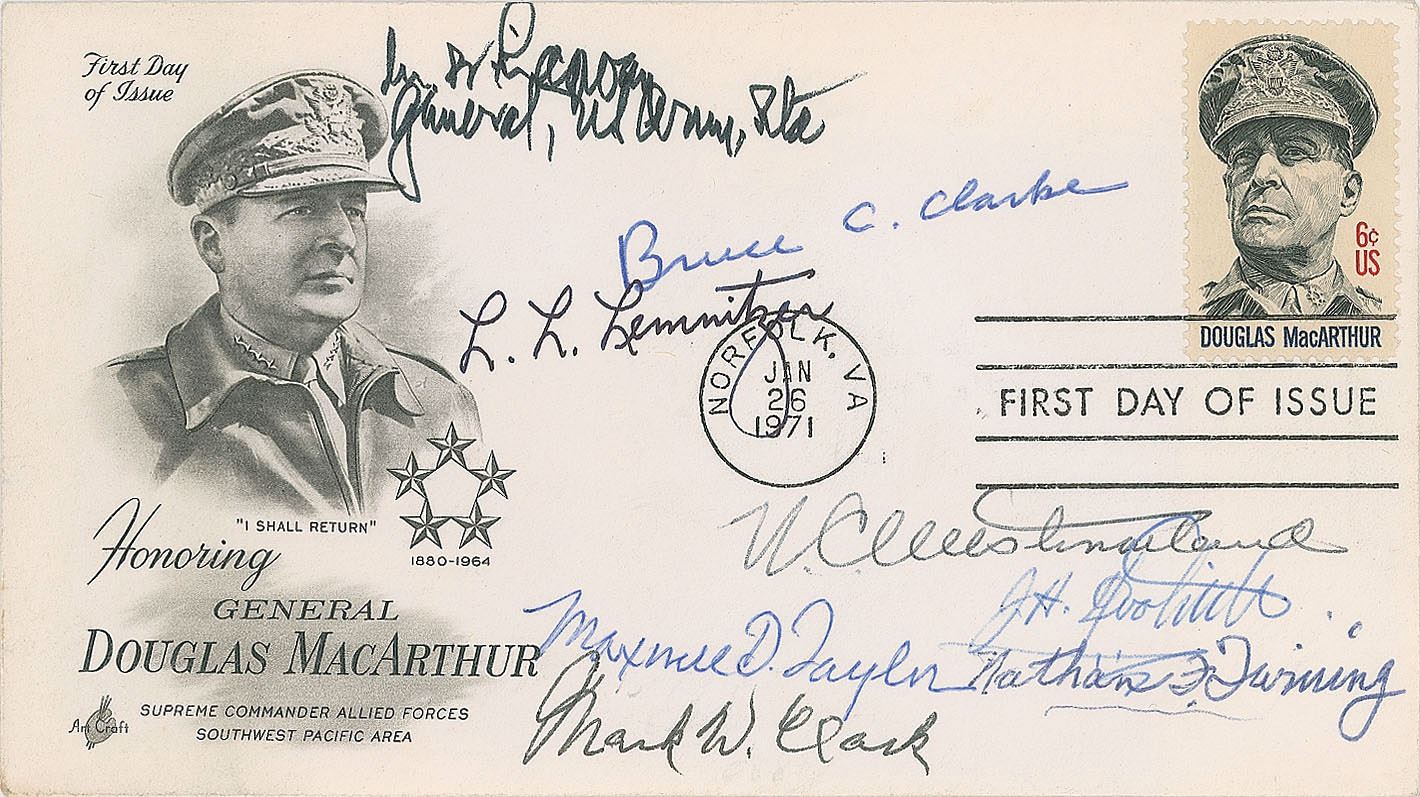 First Day
of Issue
General, US Army, Ret
Bruce C. Clarke
L. L. Lemnitzer
6¢
US
DOUGLAS MacARTHUR
NORFOLK, VA
JAN
26
1971
FIRST DAY OF ISSUE
"I SHALL RETURN"
1880-1964
Honoring
GENERAL
DOUGLAS MACARTHUR
SUPREME COMMANDER ALLIED FORCES
SOUTHWEST PACIFIC AREA
Art Craft
W. C. Westmoreland
J. H. Doolittle
Maxwell D. Taylor
Nathan F. Twining
Mark W. Clark